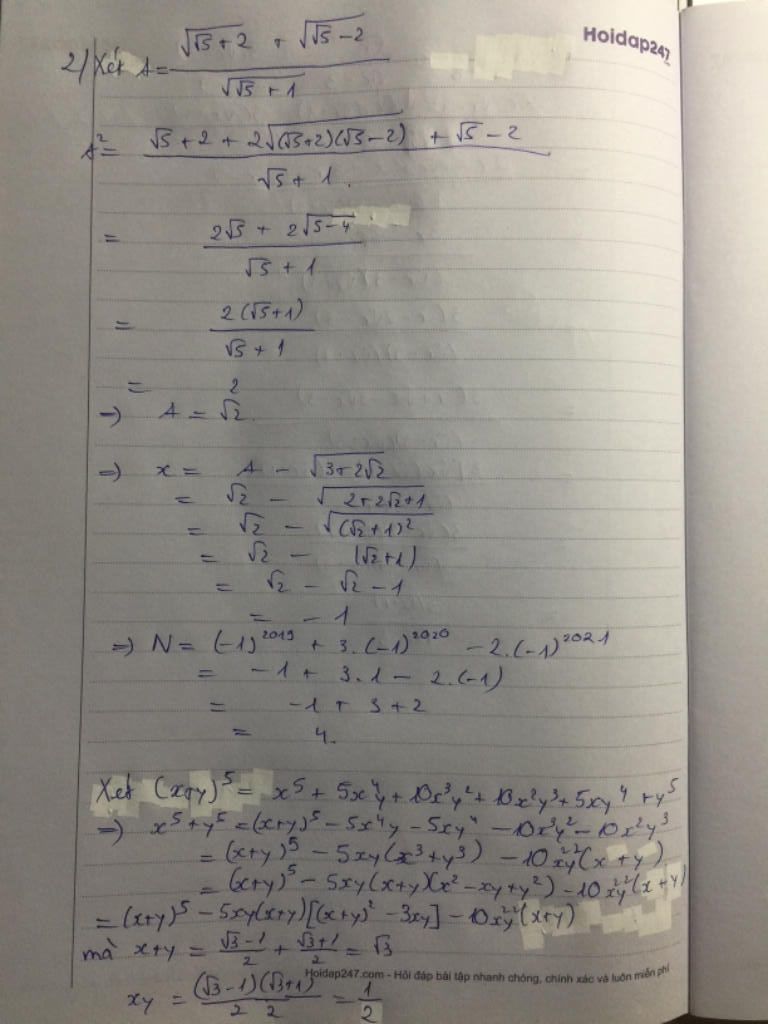 Hoidap247
2) Xét A = (√(√5+2) + √(√5-2)) / √(√5+1)
A² = (√5+2 + 2√((√5+2)(√5-2)) + √5-2) / (√5+1).
= (2√5 + 2√(5-4)) / (√5+1)
= 2(√5+1) / (√5+1)
= 2
=) A = √2.
=) x = A - √(3+2√2)
= √2 - √(2+2√2+1)
= √2 - √((√2+1)²)
= √2 - (√2+1)
= √2 - √2 - 1
= -1
=) N = (-1)²⁰¹⁹ + 3.(-1)²⁰²⁰ - 2.(-1)²⁰²¹
= -1 + 3.1 - 2.(-1)
= -1 + 3 + 2
= 4.
Xét (x+y)⁵ = x⁵ + 5x⁴y + 10x³y² + 10x²y³ + 5xy⁴ + y⁵
=) x⁵+y⁵ = (x+y)⁵ - 5x⁴y - 5xy⁴ - 10x³y² - 10x²y³
= (x+y)⁵ - 5xy(x³+y³) - 10x²y²(x+y)
= (x+y)⁵ - 5xy(x+y)(x²-xy+y²) - 10x²y²(x+y)
= (x+y)⁵ - 5xy(x+y)[(x+y)² - 3xy] - 10x²y²(x+y)
mà x+y = (√3-1)/2 + (√3+1)/2 = √3
Hoidap247.com - Hỏi đáp bài tập nhanh chóng, chính xác và luôn miễn phí
xy = (√3-1)(√3+1) / 2 2 = 1/2